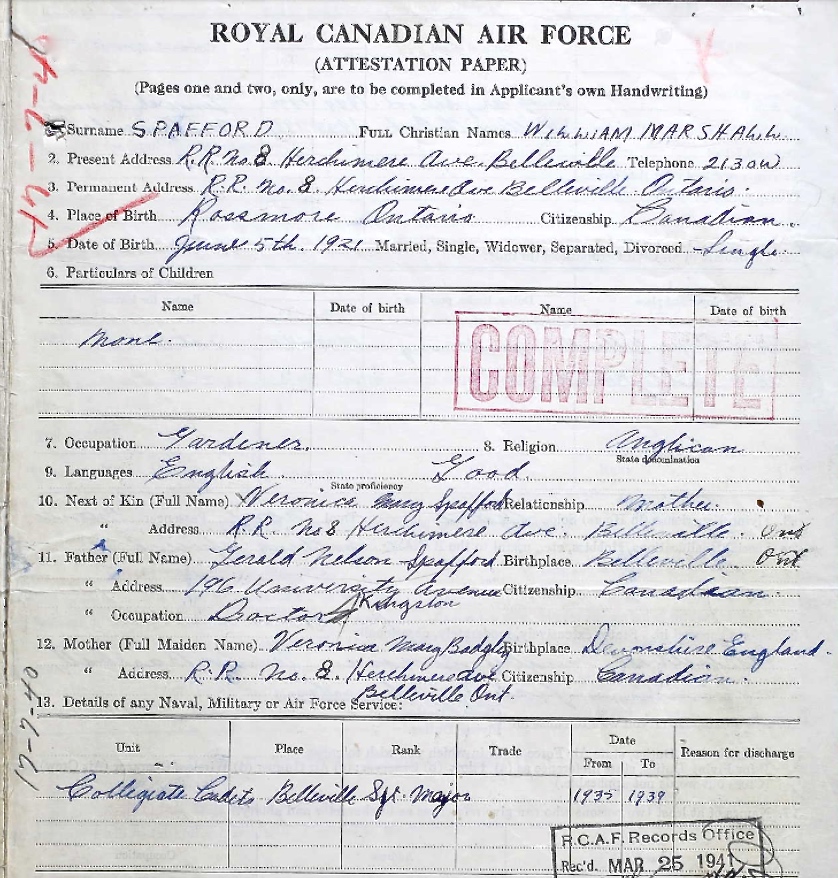 ROYAL CANADIAN AIR FORCE
(ATTESTATION PAPER)
(Pages one and two, only, are to be completed in Applicant's own Handwriting)
Surname SPAFFORD FULL Christian Names WILLIAM MARSHALL
2. Present Address R.R. No. 8 Herchimere Ave. Belleville Telephone 2130W
3. Permanent Address R.R. No. 8 Herchimere Ave Belleville Ontario.
4. Place of Birth Rossmore Ontario Citizenship Canadian.
5. Date of Birth June 5th. 1921 Married, Single, Widower, Separated, Divorced Single.
6. Particulars of Children
Name Date of birth Name Date of birth
None.
COMPLETE
7. Occupation Gardener. 8. Religion Anglican
State denomination
9. Languages English. Good.
State proficiency
10. Next of Kin (Full Name) Veronica Mary Spafford Relationship Mother.
" Address R.R. No 8 Herchimere Ave. Belleville. Ont
11. Father (Full Name) Gerald Nelson Spafford Birthplace Belleville Ont
" Address 196 University Avenue Citizenship Canadian.
Kingston
" Occupation Doctor
12. Mother (Full Maiden Name) Veronica Mary Birthplace Devonshire England.
" Address R.R. No. 8. Herchimere Ave. Citizenship Canadian.
Belleville Ont.
13. Details of any Naval, Military or Air Force Service:
Unit Place Rank Trade Date Reason for discharge
From To
Collegiate Cadets Belleville Sgt. Major 1935 1939
R.C.A.F. Records Office
Rec'd. MAR 25 1941
17-7-40